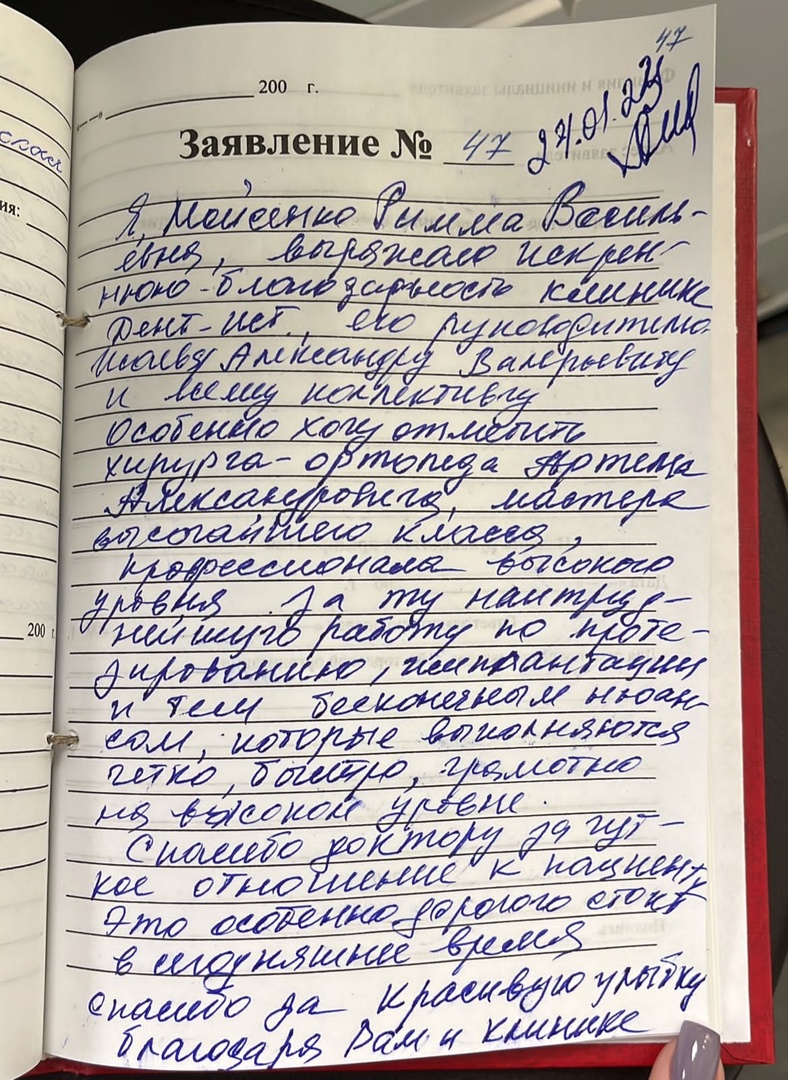 47
200 г.
Заявление № 47
24.01.23
Я, Моисенко Римма Василь-
евна, выражаю искрен-
нюю благодарность клинике
Дент-ист, его руководителю
Александру Валерьевичу
и всему коллективу
Особенно хочу отметить
хирурга-ортопеда Артема
Александровича, мастера
высочайшего класса,
профессионала высокого
уровня за ту наитруд-
нейшую работу по проте-
зированию, имплантации
и тем бесконечным нюан-
сом, которые выполняются
четко, быстро, грамотно
на высоком уровне.
Спасибо доктору за чут-
кое отношение к пациенту
Это особенно дорогого стоит
в сегодняшнее время
спасибо за красивую улыбку
благодаря Вам и клинике
ия:
200 г.